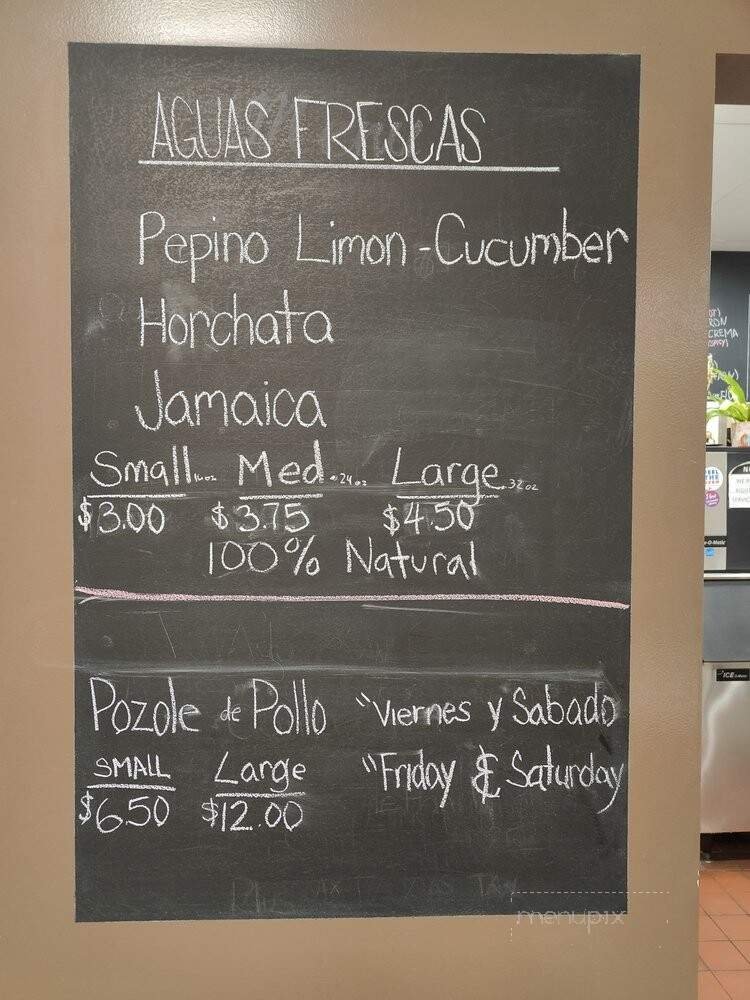 AGUAS FRESCAS
Pepino Limon - Cucumber
Horchata
Jamaica
Small 16oz Med. 24oz Large. 32oz
$3.00 $3.75 $4.50
100% Natural
Pozole de Pollo "Viernes y Sabado
SMALL Large "Friday & Saturday
$6.50 $12.00
CREMA
ICE-O-Matic
menupix